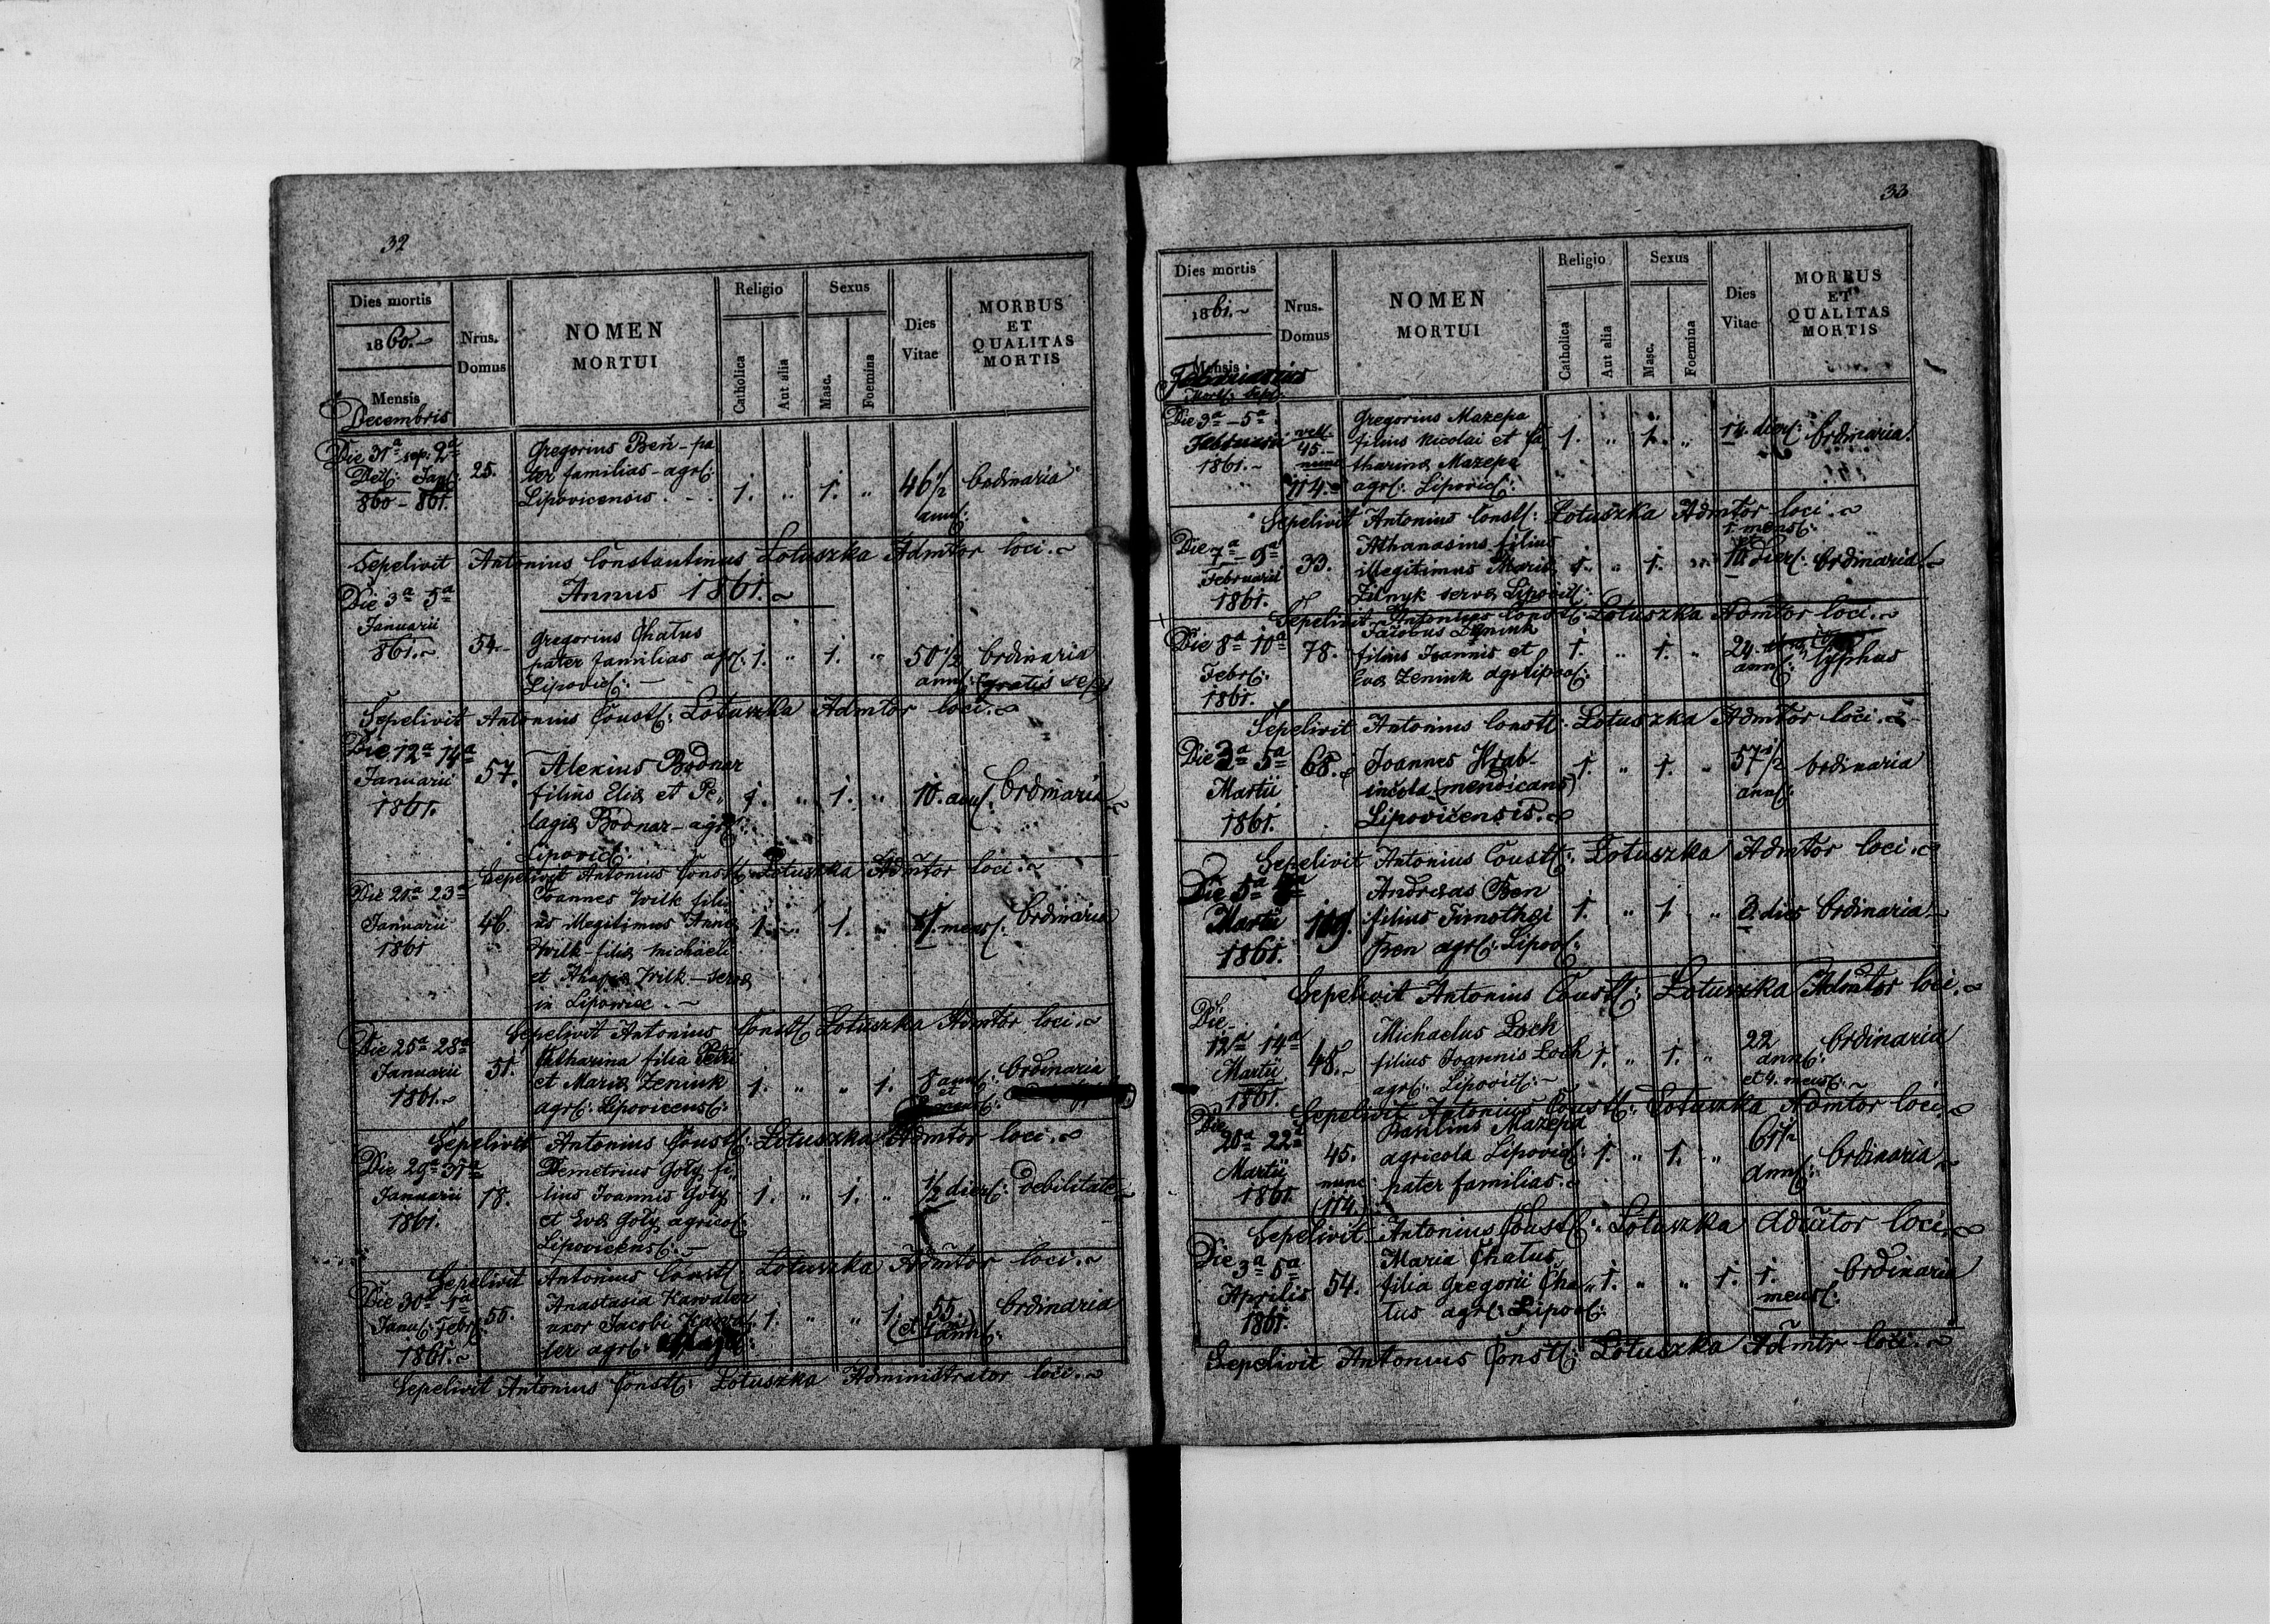 32
Dies mortis
1860.~
Mensis
Decembris
Nrus.
Domus
NOMEN
MORTUI
Religio
Catholica
Aut alia
Sexus
Masc.
Foemina
Dies
Vitae
MORBUS
ET
QUALITAS
MORTIS
Die 31a sep: 2a
860 – 861.
25.
Gregorius Ben – pa
ter familias – agrl:
Lipovicensis. –
1. „ 1. „
46 1/2
ann:
Ordinaria
Sepelivit Antonius Constantinus Lotuszka Admtor loci.~
Annus 1861.~
Die 3a 5a
Januarii
861.~
54.
Gregorius Chatus
pater familias agr:
Lipovic: –
1. „ 1. „
50 1/2
ann:
Ordinaria
Sepelivit Antonius Const: Lotuszka Admtor loci.~
Die 12a 14a
Januarii
1861.
57.
Alexius Bodnar
filius Eliæ et Pe„
lagiæ Bodnar – agr:
Lipovic:
1. „ 1. „
10. ann:
Ordinaria
Sepelivit Antonius Const: Lotuszka Admtor loci.~
Die 21a 23a
Januarii
1861
46.
Joannes Wilk fili„
us illegitimus Annæ
Wilk – filiæ Michaeli
et Wilk – servæ
in Lipowiec. ~
1. „ 1. „
mens:
Ordinaria
Sepelivit Antonius Const: Lotuszka Admtor loci.~
Die 25a 28a
Januarii
1861.~
51.
Catharina filia Petri
et Mariæ Zeniuk
agrl: Lipovicens:
1. „ „ 1.
8 ann:
et
Ordinaria
Sepelivit Antonius Const: Lotuszka Admtor loci.~
Die 29a 31a
Januarii
1861.
18.
Demetrius Goły fi„
lius Joannis Goły
et Evæ Goły agricol:
Lipovicens: –
1. „ 1. „
1/2 dier:
debilitate
Sepelivit Antonius Const: Lotuszka Admtor loci.~
Die 30a 1a
Janu: Febr:
1861.~
55.
Anastasia Kawaler
uxor Jacobi Kawa„
ler agrl:
1. „ „ 1.
55.
ann:
Ordinaria
Sepelivit Antonius Const: Lotuszka Administrator loci.~
33
Dies mortis
1861.~
Mensis
Februarius
Nrus.
Domus
NOMEN
MORTUI
Religio
Catholica
Aut alia
Sexus
Masc.
Foemina
Dies
Vitae
MORBUS
ET
QUALITAS
MORTIS
Die 3a – 5a
Februarii
1861.~
45.
nunc
114.
Gregorius Mazepa
filius Nicolai et Ca„
tharinæ Mazepa
agrl: Lipovic:
1. „ 1. „
14. dier:
Ordinaria.
Sepelivit Antonius Const: Lotuszka Admtor loci.~
Die 7a – 9a
Februarii
1861.
33.
Athanasius filius
illegitimus Mariæ
Zilnyk servæ Lipovic:
1. „ 1. „
1. mens:
et
10. dier:
Ordinaria
Sepelivit Antonius Const: Lotuszka Admtor loci.~
Die 8a 10a
Febr:
1861.
78.
Jacobus Zeniuk
filius Joannis et
Evæ Zeniuk agr Lipov:
1. „ 1. „
24.
ann:
Typhus
Sepelivit Antonius Const: Lotuszka Admtor loci.~
Die 3a 5a
Martii
1861.
68.
Joannes Hrab –
incola (mendicans)
Lipovicensis.~
1. „ 1. „
57 1/2
ann:
Ordinaria
Sepelivit Antonius Const: Lotuszka Admtor loci.~
Die
Martii
1861.
119.
Andreas Ben
filius Timothei
Ben agrl: Lipov:
1. „ 1. „
3. dies
Ordinaria
Sepelivit Antonius Const: Lotuszka Admtor loci.~
Die
12a 14a
Martii
1861.
48.~
Michaelus Loch
filius Joannis Loch
agrl: Lipovic: –
1. „ 1. „
22
ann:
et 4. mens:
Ordinaria
Sepelivit Antonius Const: Lotuszka Admtor loci.~
Die
20a 22a
Martii
1861
45.
nunc
(114.)
Basilius Mazepa
agricola Lipovic:
pater familias.~
1. „ 1. „
ann:
Ordinaria
Sepelivit Antonius Const: Lotuszka Admtor loci.~
Die 3a 5a
Aprilis
1861.
54.
Maria Chatus
filia Gregorii Cha„
tus agrl: Lipov:
1. „ „ 1.
1.
mens:
Ordinaria
Sepelivit Antonius Const: Lotuszka Admtr loci.~